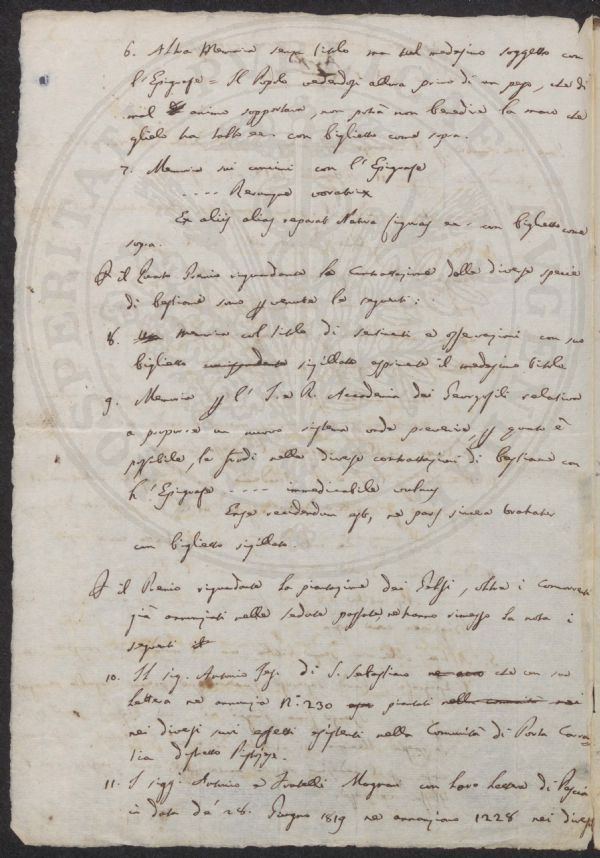 6. Altra Memoria senza titolo ma sul medesimo soggetto con
l'Epigrafe = Il Popolo vedendosi allora privo di un peso, che di
mal animo sopportava, non potrà non benedire la mano che
glielo ha tolto ec. con biglietto come sopra.
7. Memoria sui cammini con l'Epigrafe
.... Rerumque novatrix
Ex aliis alias reparat Natura figuras ec. con biglietto come
sopra.
il Premio riguardante la Contrattazione delle diverse specie
di bestiame sono venute le seguenti:
8. Memoria col titolo di e osservazioni con suo
biglietto sigillato esprimente il medesimo titolo
9. Memoria l'I. e R. Accademia dei Georgofili relativa
a proporre un nuovo sistema onde prevenire, quanto è
possibile, le frodi nelle diverse contrattazioni di bestiame con
l'Epigrafe .... immedicabile vulnus
Ense recidendum est, ne pars sincera trahatur
con biglietto sigillato.
il Premio riguardante la piantazione dei Gelsi, oltre i Concorrenti
già annunziati nelle sedute passate, ne hanno rimesso la nota i
seguenti
10. Il sig. Antonio di S. Sebastiano che con sua
Lettera ne annunzia N.° 230 piantati
nei diversi suoi effetti esistenti nella Comunità di Porta Carra-
tica distretto
11. I sigg. Antonio e Fratelli Magnani con loro Lettera di Pescia
in data de' 28. Giugno 1819 ne annunziano 1228 nei diversi